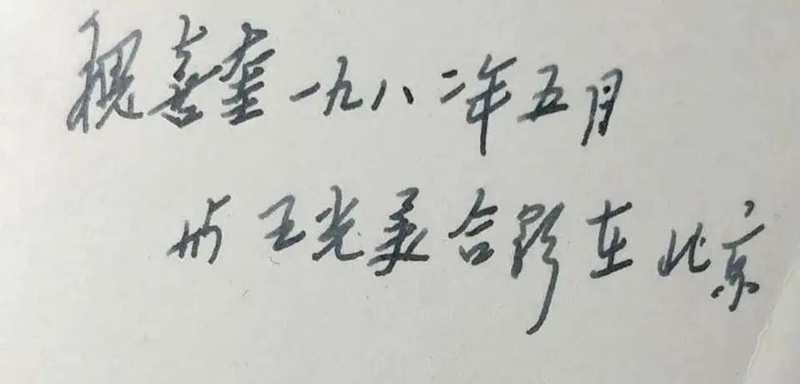 魏喜奎一九八二年五月
与王光美合影在北京